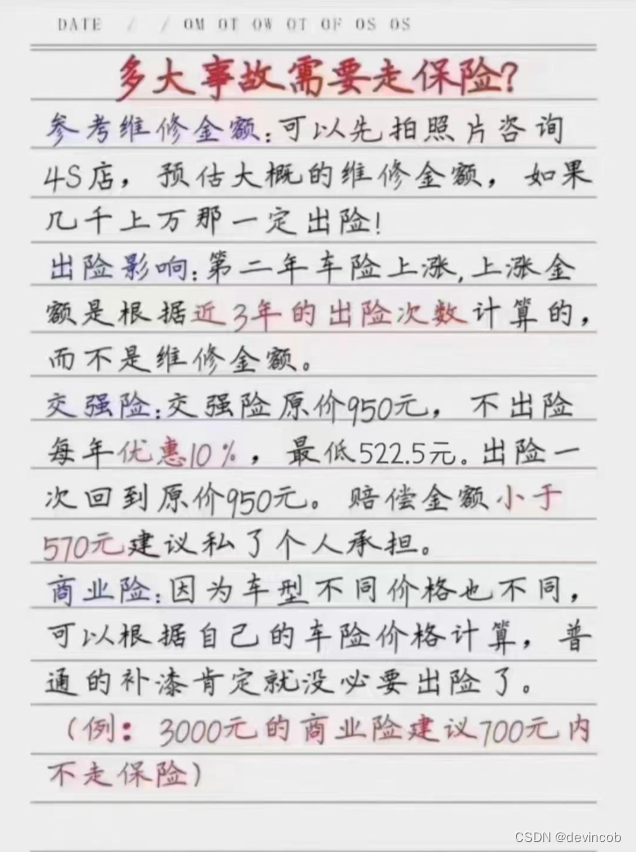 DATE / / OM OT OW OT OF OS OS
多大事故需要走保险?
参考维修金额:可以先拍照片咨询
4S店，预估大概的维修金额，如果
几千上万那一定出险!
出险影响:第二年车险上涨,上涨金
额是根据近3年的出险次数计算的，
而不是维修金额。
交强险:交强险原价950元，不出险
每年优惠10%，最低522.5元.出险一
次回到原价950元。赔偿金额小于
570元建议私了个人承担。
商业险:因为车型不同价格也不同，
可以根据自己的车险价格计算，普
通的补漆肯定就没必要出险了。
（例：3000元的商业险建议700元内
不走保险）
CSDN @devincob